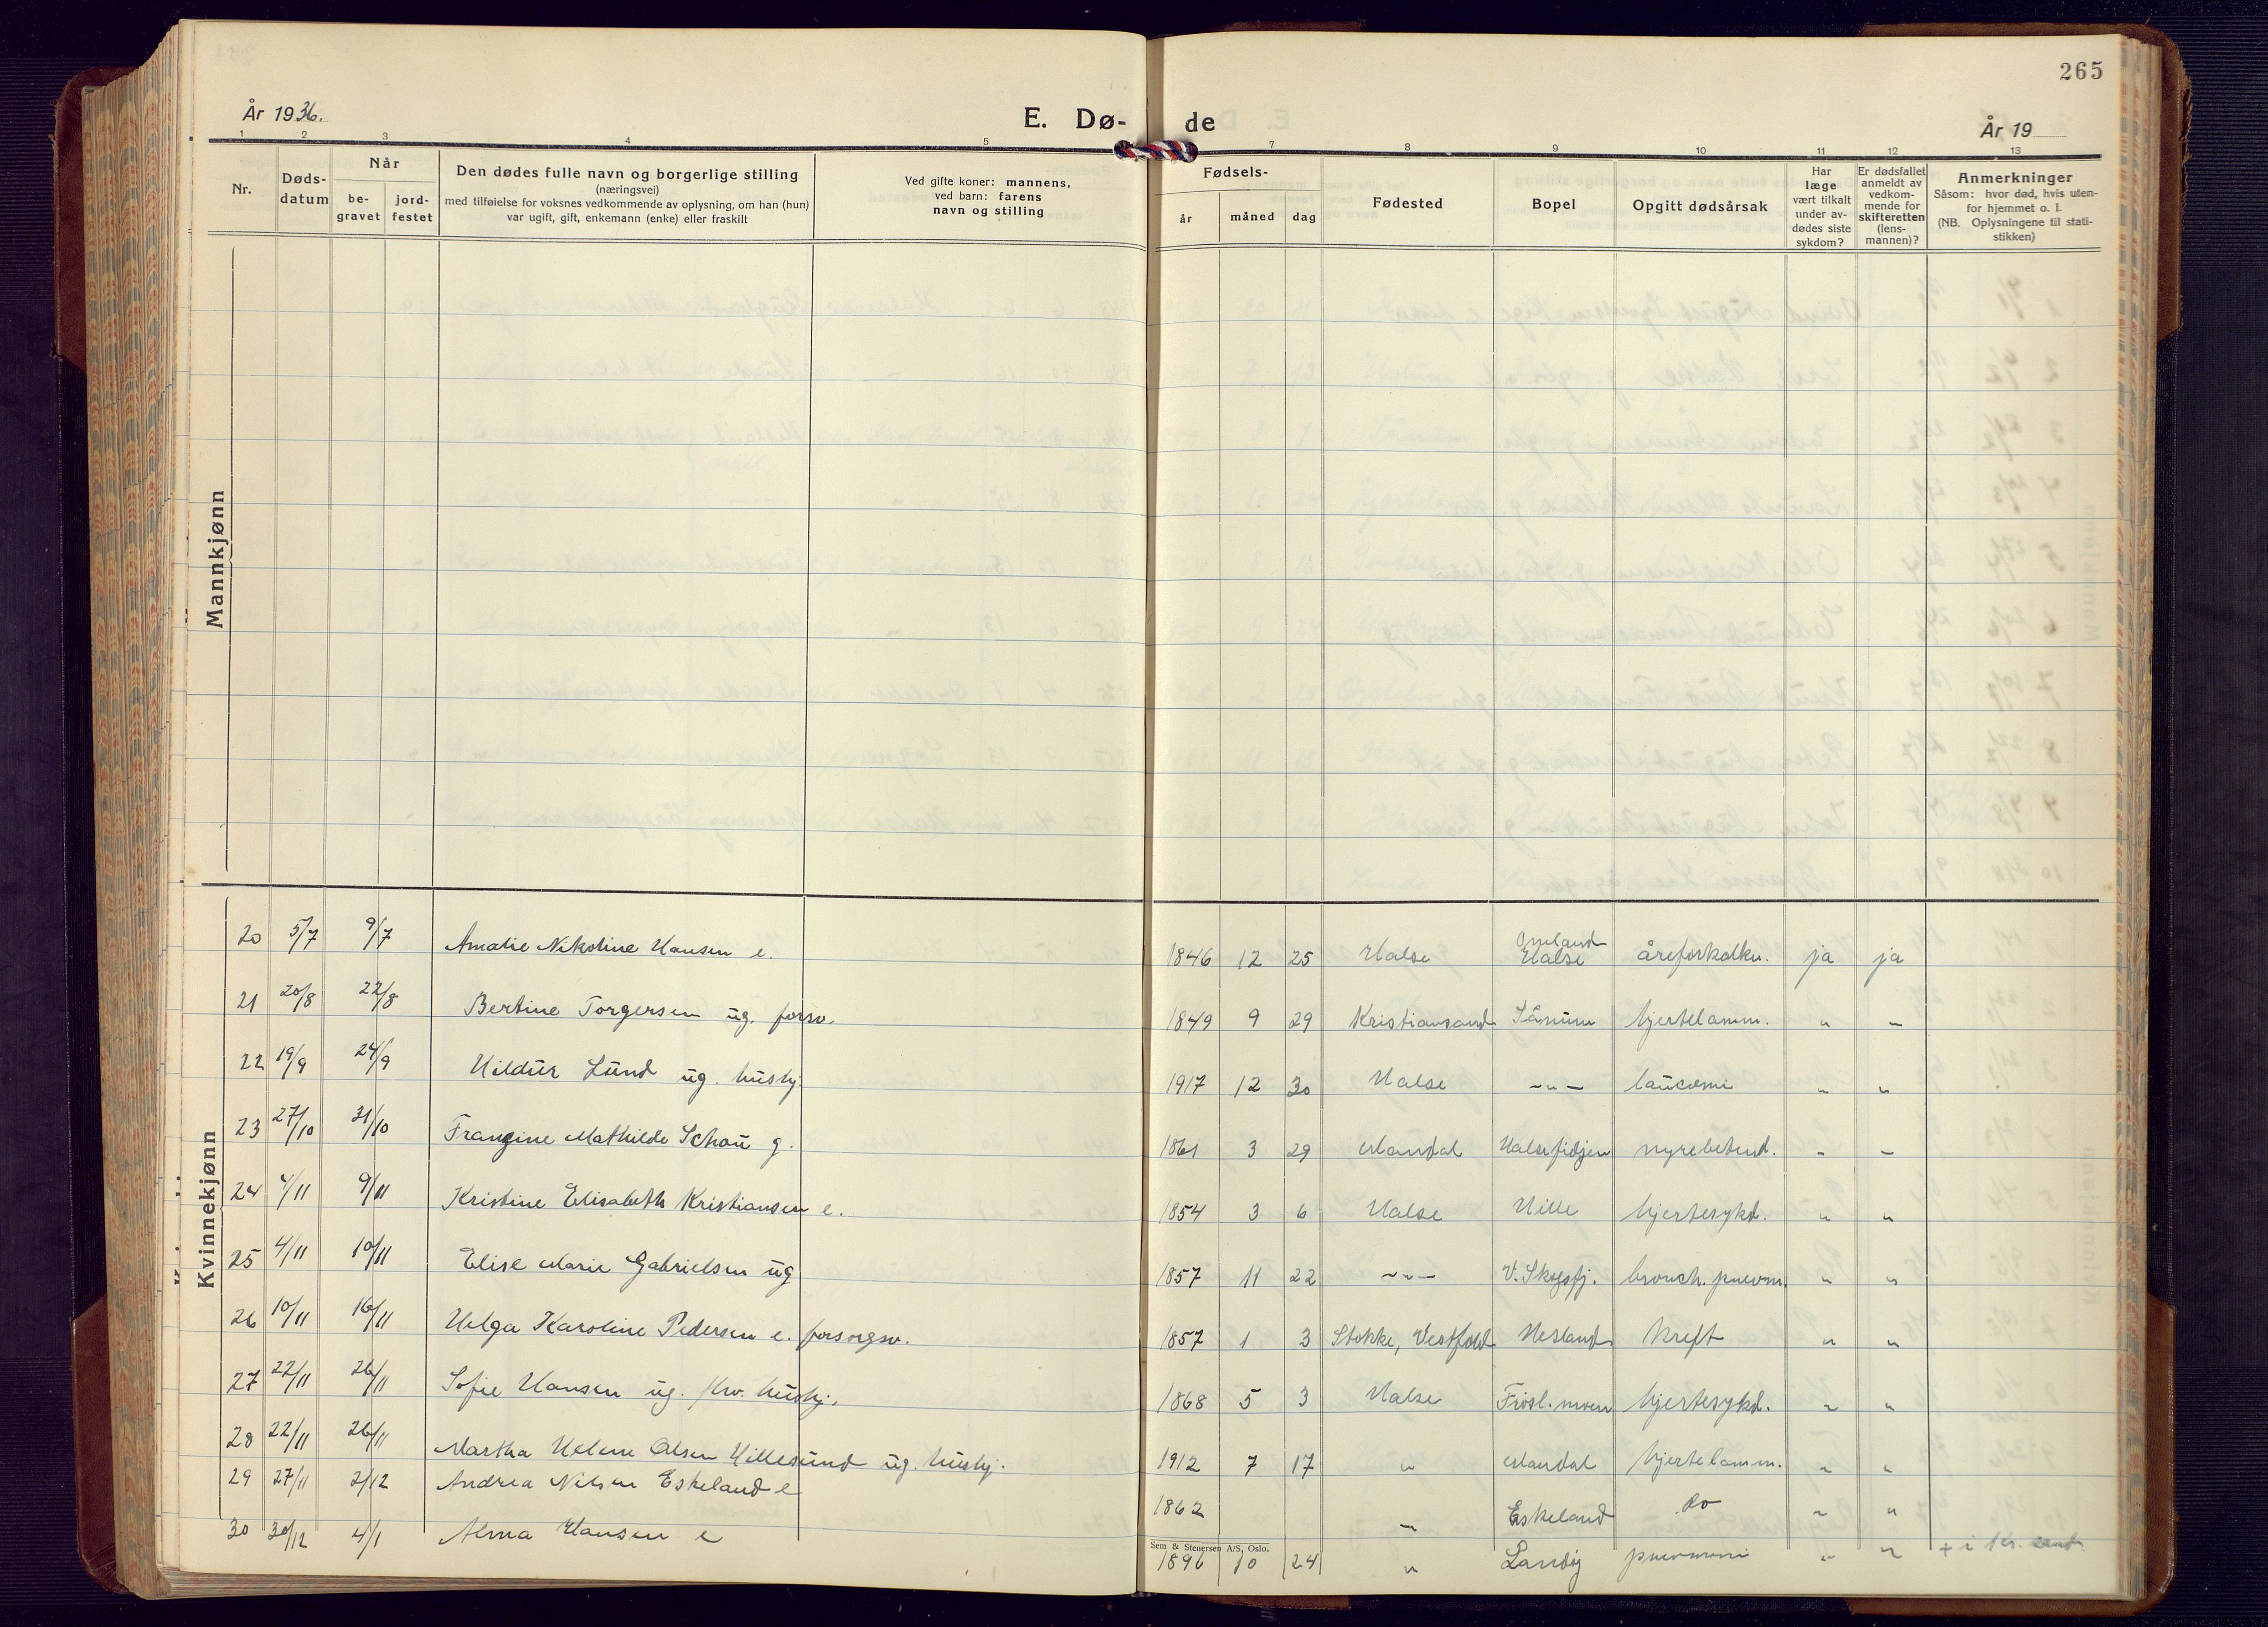 265
År 1936.
E. Dø-
de
År 19
1 2 3 4 5 7 8 9 10 11 12 13
Nr.
Døds-
datum
Når
be-
gravet
jord-
festet
Den dødes fulle navn og borgerlige stilling
(næringsvei)
med tilføielse for voksnes vedkommende av oplysning, om han (hun)
var ugift, gift, enkemann (enke) eller fraskilt
Ved gifte koner: mannens,
ved barn: farens
navn og stilling
Fødsels-
år
måned
dag
Fødested
Bopel
Opgitt dødsårsak
Har
læge
vært tilkalt
under av-
dødes siste
sykdom?
Er dødsfallet
anmeldt av
vedkom-
mende for
skifteretten
(lens-
mannen)?
Anmerkninger
Såsom: hvor død, hvis uten-
for hjemmet o. l.
(NB. Oplysningene til stati-
stikken)
Mannkjønn
Kvinnekjønn
20 5/7 9/7 Amalie Nikoline Hansen e. 1846 12 25 Halse Halse åreforkalkn. ja ja
21 20/8 22/8 Bertine Torgersen ug. forsv. 1849 9 29 Kristiansand Sånum hjertelamm. " -
22 19/9 24/9 Hildur Lund ug. hushj. 1917 12 30 Halse -"- " "
23 27/10 31/10 Frangine Mathilde Schou g. 1861 3 29 Mandal Halsefidjen nyrebetend. - -
24 4/11 9/11 Kristine Elisabeth Kristiansen e. 1854 3 6 Halse Hille hjertesykd. " "
25 4/11 10/11 Elise Marie Gabrielsen ug 1857 11 22 -"- V. Skogsfj. bronch. pneum. " "
26 10/11 16/11 Helga Karoline Pedersen e. forsorgsv. 1857 1 3 Stokke, Vestfold Hesland kreft " "
27 22/11 26/11 Sofie Hansen ug. hushj. 1868 5 3 Halse Frøsl. moen hjertesykd. " "
28 22/11 26/11 Martha Helene Olsen Hillesund ug. hushj. 1912 7 17 " Mandal hjertelamm. " "
29 27/11 2/12 Andrea Nilsen Eskeland e 1862 " Eskeland do " "
30 30/12 4/1 Alma Hansen e 1896 10 24 " Landøy pneumoni " " + i Kr. sand.
Sem & Stenersen A/S, Oslo.